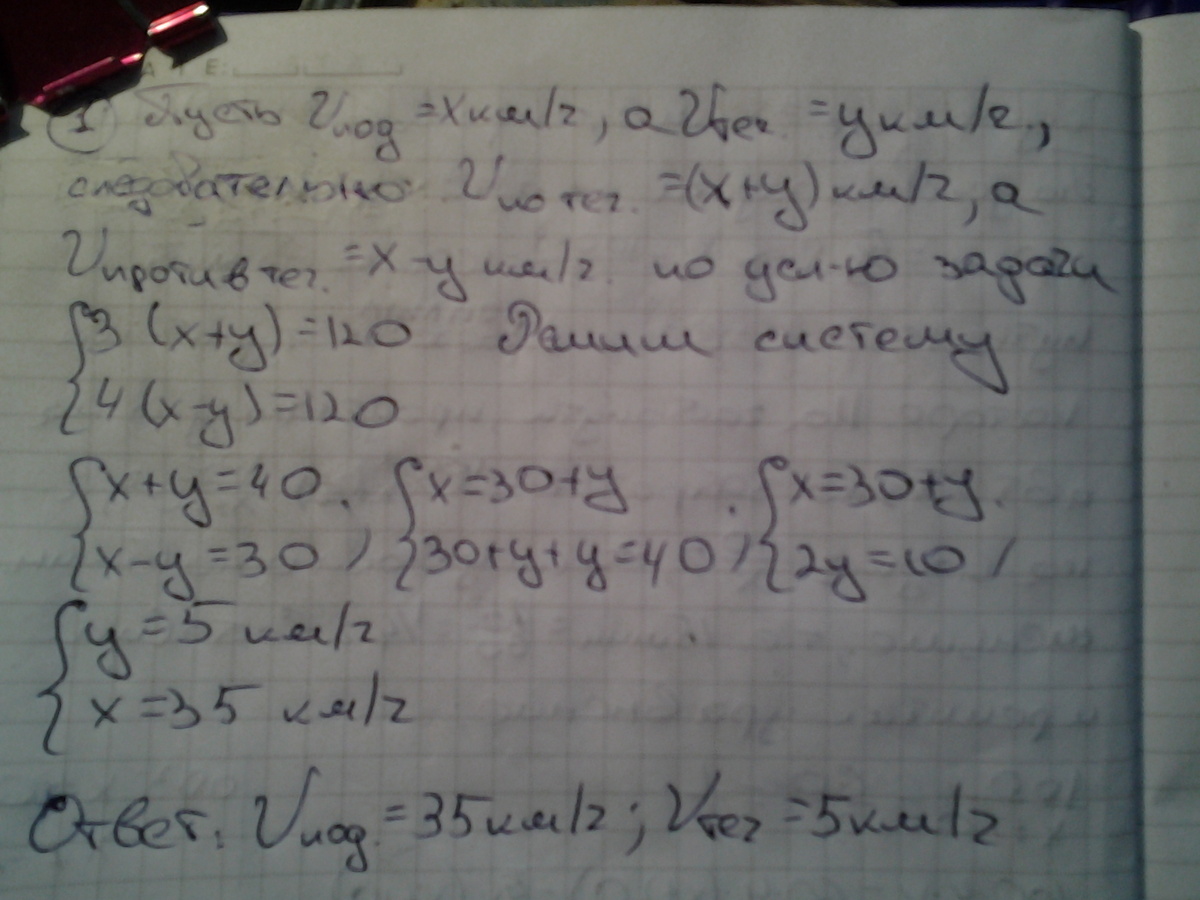 A T E:
① Пусть Vлод = x км/ч, а Vтеч. = y км/ч,
следовательно Vпо теч. = (x+y) км/ч, а
Vпротив теч. = x-y км/ч. по усл-ю задачи
{3 (x+y) = 120 Решим систему
{4 (x-y) = 120
{x+y=40 {x=30+y {x=30+y
{x-y=30, {30+y+y=40, {2y=10,
{y=5 км/ч
{x=35 км/ч
Ответ: Vлод. = 35 км/ч; Vтеч = 5 км/ч